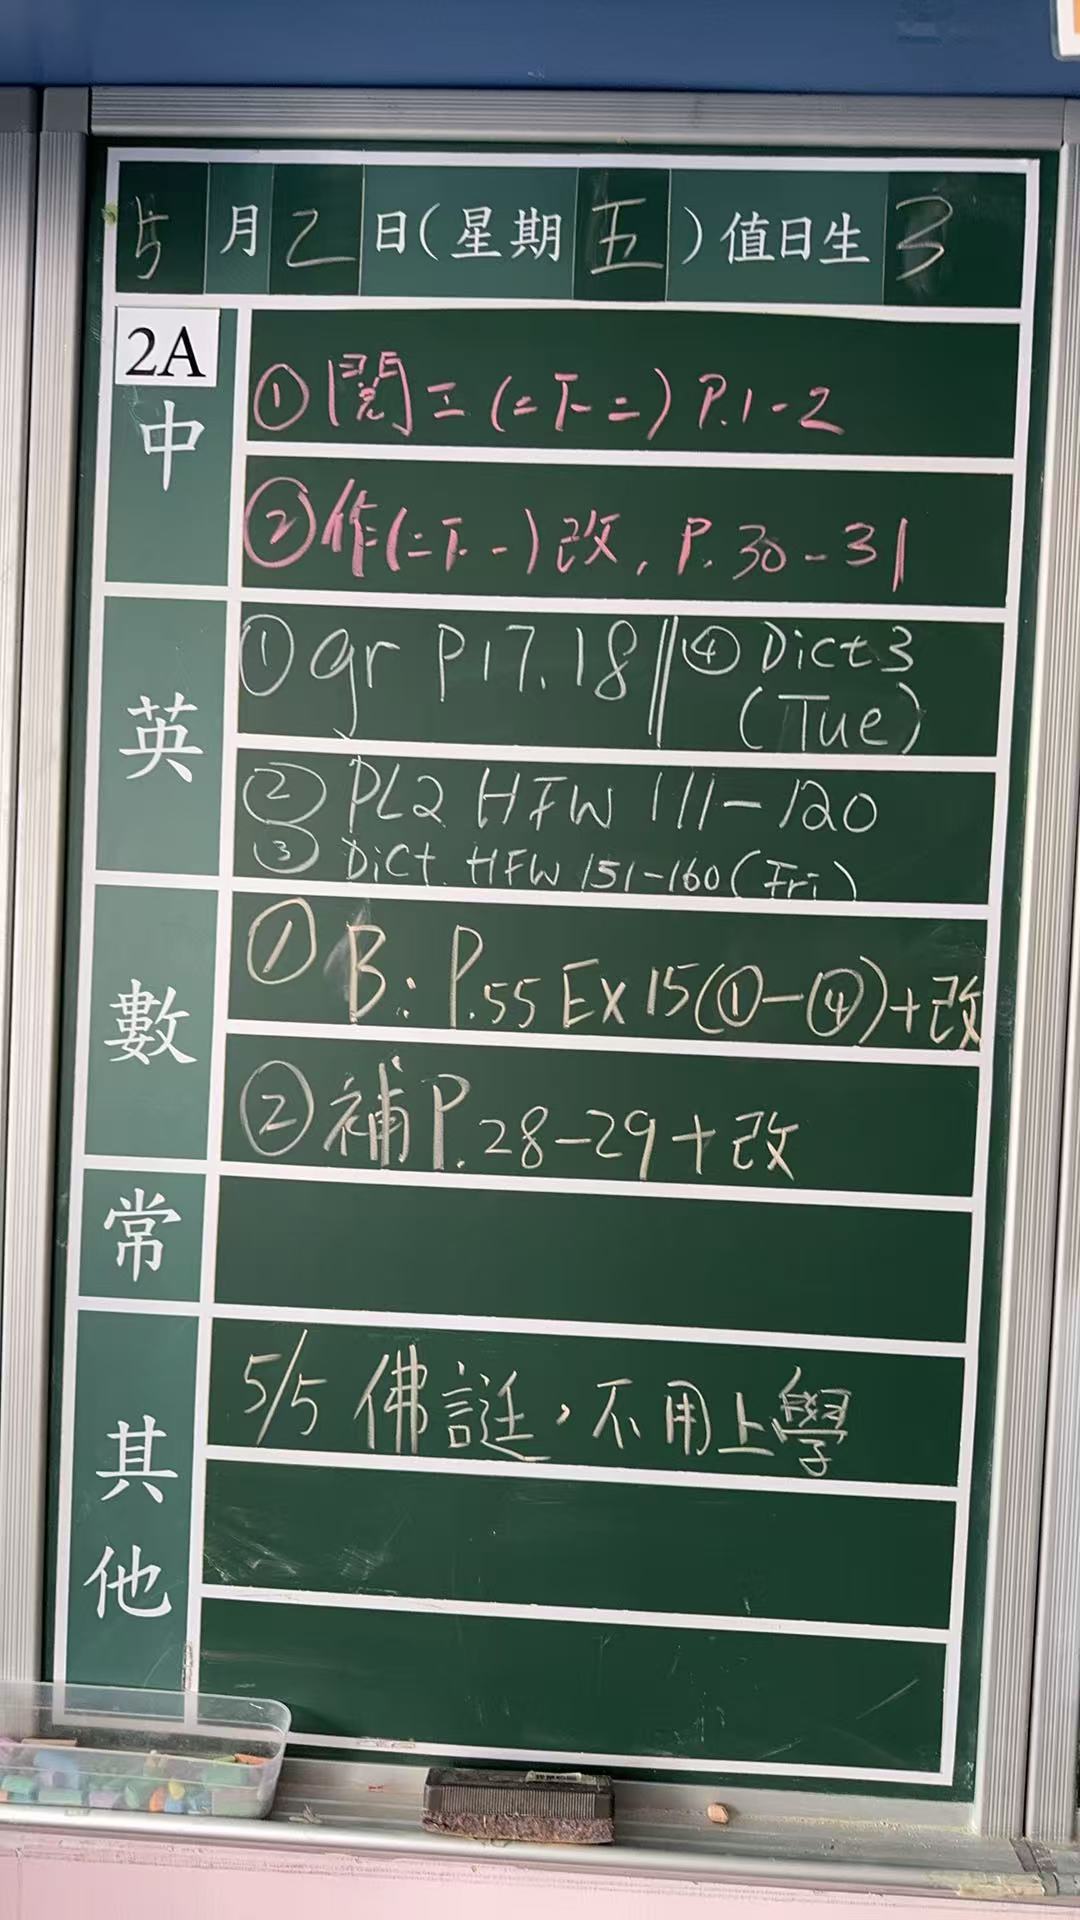 5月2日(星期五)值日生3
2A
中
①閱工(二下二)P.1-2
②作(二下一)改,P.30-31
英
①gr P17.18 || ④Dict3
(Tue)
②PL2 HFW 111-120
③Dict. HFW 151-160(Fri)
數
①B:P.55 Ex15(①-④)+改
②補P.28-29+改
常
其他
5/5 佛誕,不用上學